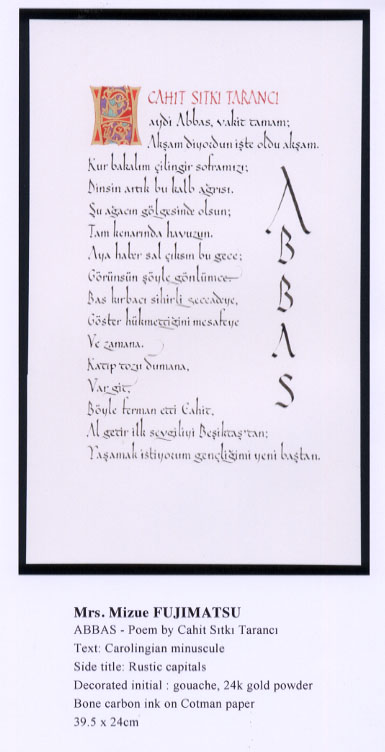 CAHIT SITKI TARANCI
Haydi Abbas, vakit tamam;
Akşam diyordun işte oldu akşam.
Kur bakalım çilingir soframızı;
Dinsin artık bu kalb ağrısı.
Şu ağacın gölgesinde olsun;
Tam kenarında havuzun.
Aya haber sal çıksın bu gece;
Görünsün şöyle gönlümce.
Bas kırbacı sihirli seccadeye,
Göster hükmettiğini mesafeye
Ve zamana.
Katıp tozu dumana,
Var git,
Böyle ferman etti Cahit,
Al getir ilk sevgiliyi Beşiktaş'tan;
Yaşamak istiyorum gençliğimi yeni baştan.
ABBAS
Mrs. Mizue FUJIMATSU
ABBAS - Poem by Cahit Sıtkı Tarancı
Text: Carolingian minuscule
Side title: Rustic capitals
Decorated initial : gouache, 24k gold powder
Bone carbon ink on Cotman paper
39.5 x 24cm